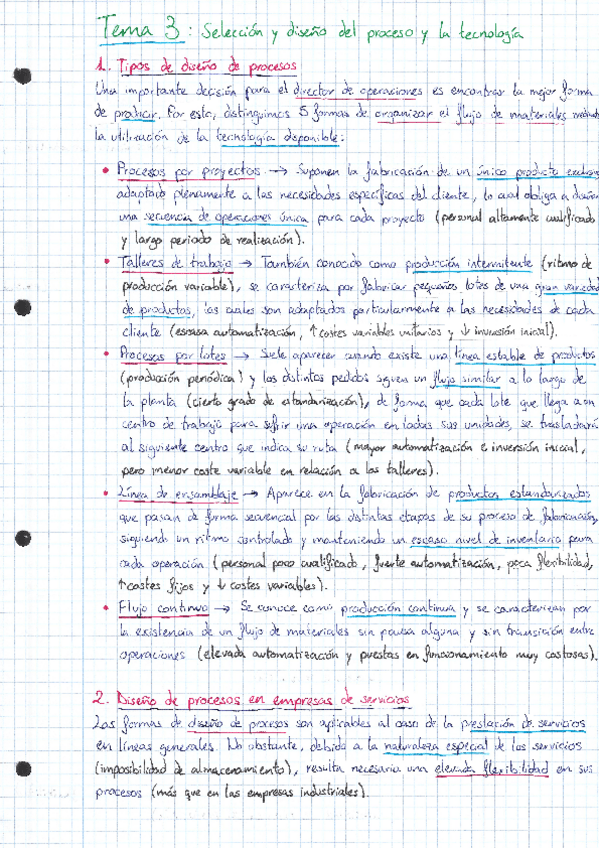 Tema 3: Selección y diseño del proceso y la tecnología
1. Tipos de diseño de procesos
Una importante decisión para el director de operaciones es encontrar la mejor forma
de producir. Por esto, distinguimos 5 formas de organizar el flujo de materiales mediante
la utilización de la tecnología disponible:
• Procesos por proyectos → Suponen la fabricación de un único producto exclusivo
adaptado plenamente a las necesidades específicas del cliente, lo cual obliga a diseñar
una secuencia de operaciones única para cada proyecto (personal altamente cualificado
y largo periodo de realización).
• Talleres de trabajo → También conocido como producción intermitente (ritmo de
producción variable), se caracteriza por fabricar pequeños lotes de una gran variedad
de productos, los cuales son adaptados particularmente a las necesidades de cada
cliente (escasa automatización, ↑ costes variables unitarios y ↓ inversión inicial).
• Procesos por lotes → Suele aparecer cuando existe una línea estable de productos
(producción periódica) y los distintos pedidos siguen un flujo similar a lo largo de
la planta (cierto grado de estandarización), de forma que cada lote que llega a un
centro de trabajo para sufrir una operación en todas sus unidades, se trasladará
al siguiente centro que indica su ruta (mayor automatización e inversión inicial,
pero menor coste variable en relación a los talleres).
• Línea de ensamblaje → Aparece en la fabricación de productos estandarizados
que pasan de forma secuencial por las distintas etapas de su proceso de fabricación,
siguiendo un ritmo controlado y manteniendo un escaso nivel de inventario para
cada operación (personal poco cualificado, fuerte automatización, poca flexibilidad,
↑ costes fijos y ↓ costes variables).
• Flujo continuo → Se conoce como producción continua y se caracterizan por
la existencia de un flujo de materiales sin pausa alguna y sin transición entre
operaciones (elevada automatización y puestas en funcionamiento muy costosas).
2. Diseño de procesos en empresas de servicios
Las formas de diseño de procesos son aplicables al caso de la prestación de servicios
en líneas generales. No obstante, debido a la naturaleza especial de los servicios
(imposibilidad de almacenamiento), resulta necesaria una elevada flexibilidad en sus
procesos (más que en las empresas industriales).